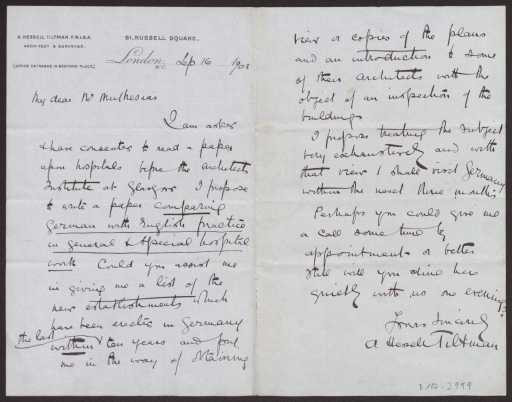 A. HESSELL TILTMAN, F.R.I.B.A.
ARCHITECT & SURVEYOR.
61, RUSSELL SQUARE,
London, Sep 16 1903
W.C.
My dear Mr Muthesius
I am asked
& have consented to read a paper
upon hospitals before the architects
Institute at Glasgow I propose
to write a paper comparing
German with English practice
in general & special hospital
work Could you assist me
in giving me a list of the
new establishments which
have been erected in Germany
the last
within ten years and put
me in the way of obtaining
view or copies of the plans
and an introduction to some
of their architects with the
object of an inspection of the
buildings
I propose treating the subject
very exhaustively and with
that view I shall visit Germany
within the next three months
Perhaps you could give me
a call some time by
appointment or better
still will you dine here
quietly with us one evening?
Yours sincerely
A Hessell Tiltman